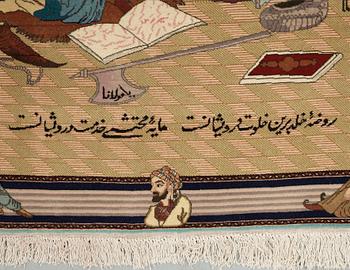 یا مولانا
روضهٔ خلد برین خلوت درویشانست مایهٔ محتشمی خدمت درویشانست